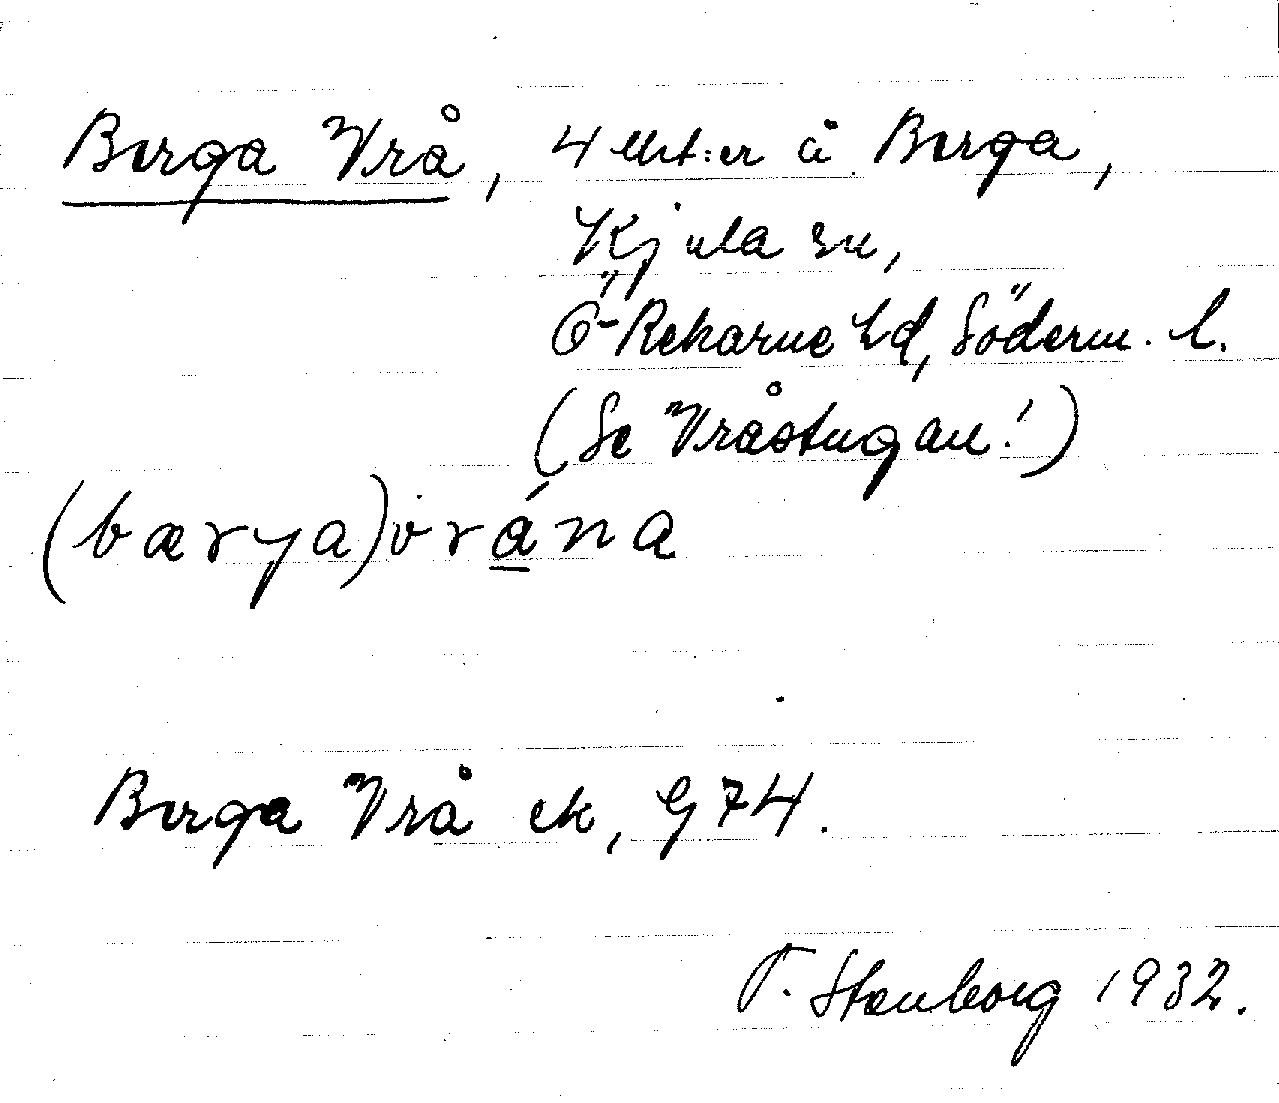 Berga Vrå, 4 lht:er å Berga,
Kjula sn,
Ö-Rekarne hd, Söderm. l.
(Se Vråstugan!)
(bærya)vrána
Berga Vrå ek, G74.
T. Stenborg 1932.